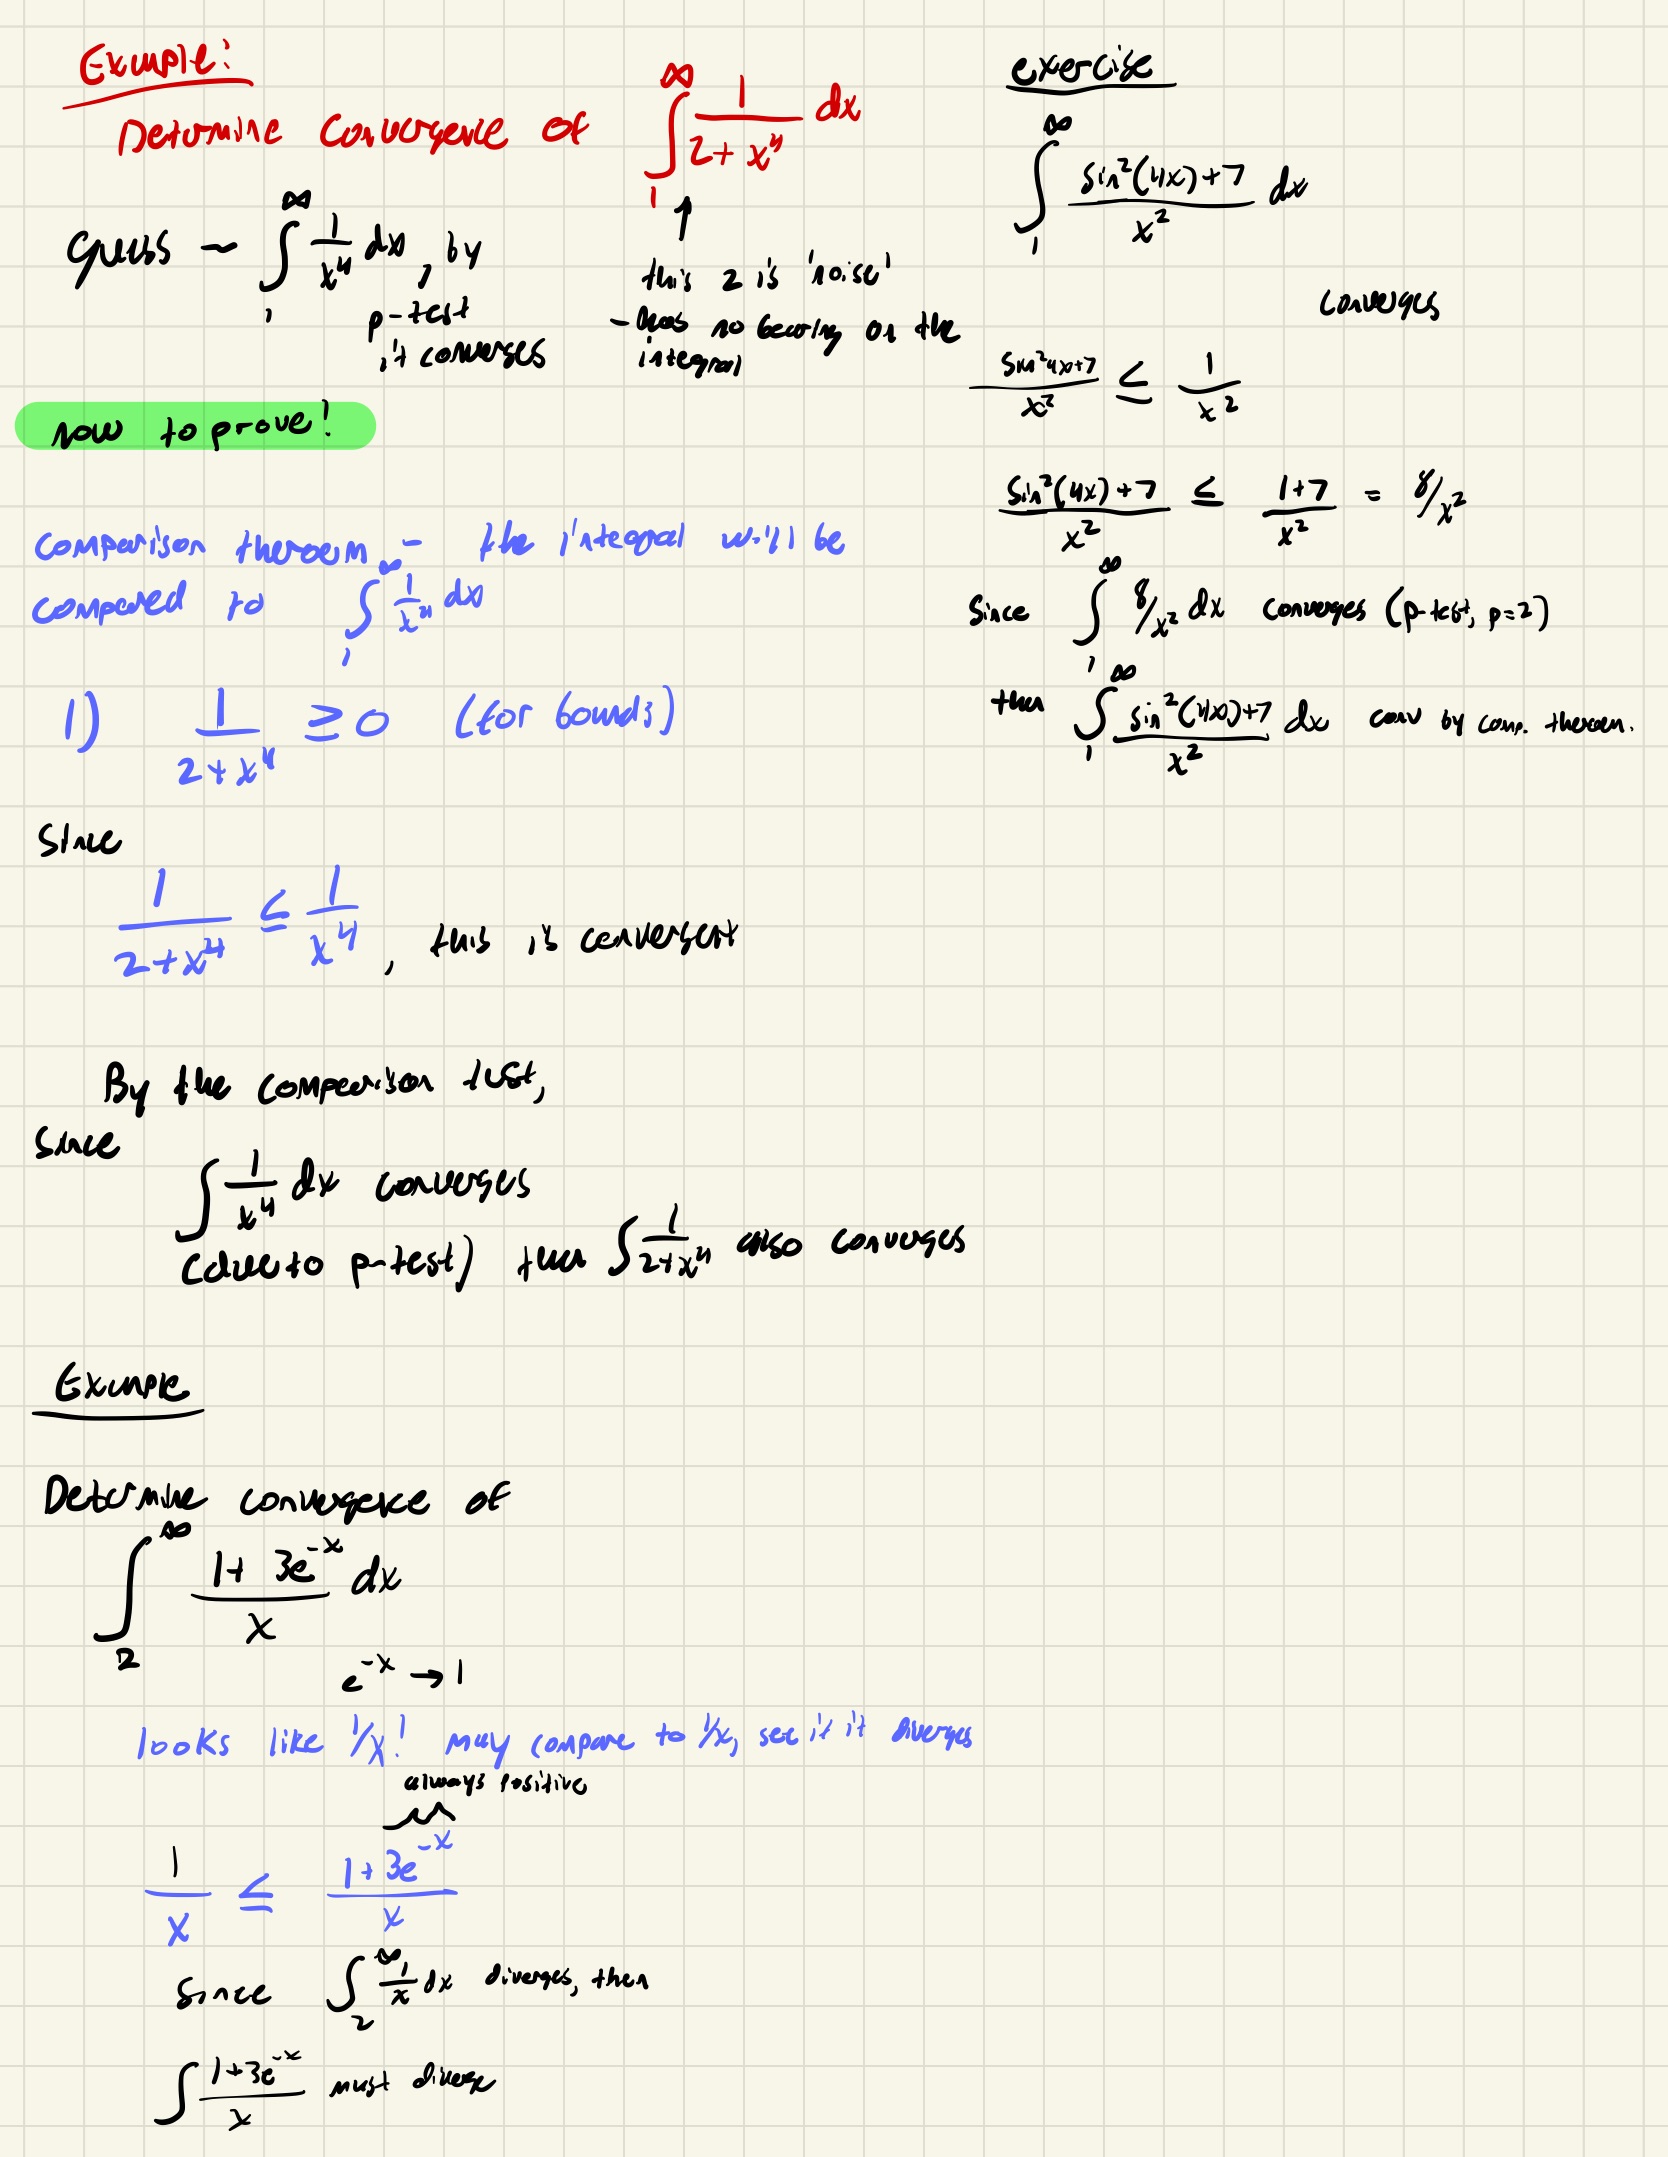 Example:
Determine Convergence of ∫₁^∞ 1/(2+x⁴) dx
guess ~ ∫₁^∞ 1/x⁴ dx, by
p-test
it converges
↑
this 2 is 'noise'
- has no bearing on the
integral
now to prove!
comparison theroem - the integral will be
compared to ∫₁^∞ 1/x⁴ dx
1) 1/(2+x⁴) ≥ 0 (for bounds)
Since
1/(2+x⁴) ≤ 1/x⁴, this is convergent
By the comparison test,
Since
∫ 1/x⁴ dx converges
(due to p-test) then ∫ 1/(2+x⁴) also converges
Example
Determine convergence of
∫₂^∞ (1+3e^-x)/x dx
e^-x → 1
looks like 1/x! may compare to 1/x, see if it diverges
always positive
1/x ≤ (1+3e^-x)/x
Since ∫₂^∞ 1/x dx diverges, then
∫ (1+3e^-x)/x must diverge
exercise
∫₁^∞ (sin²(4x)+7)/x² dx
Converges
(sin²4x+7)/x² ≤ 1/x²
(sin²(4x)+7)/x² ≤ (1+7)/x² = 8/x²
Since ∫₁^∞ 8/x² dx converges (p-test, p=2)
then ∫₁^∞ (sin²(4x)+7)/x² dx conv by comp. theroem.